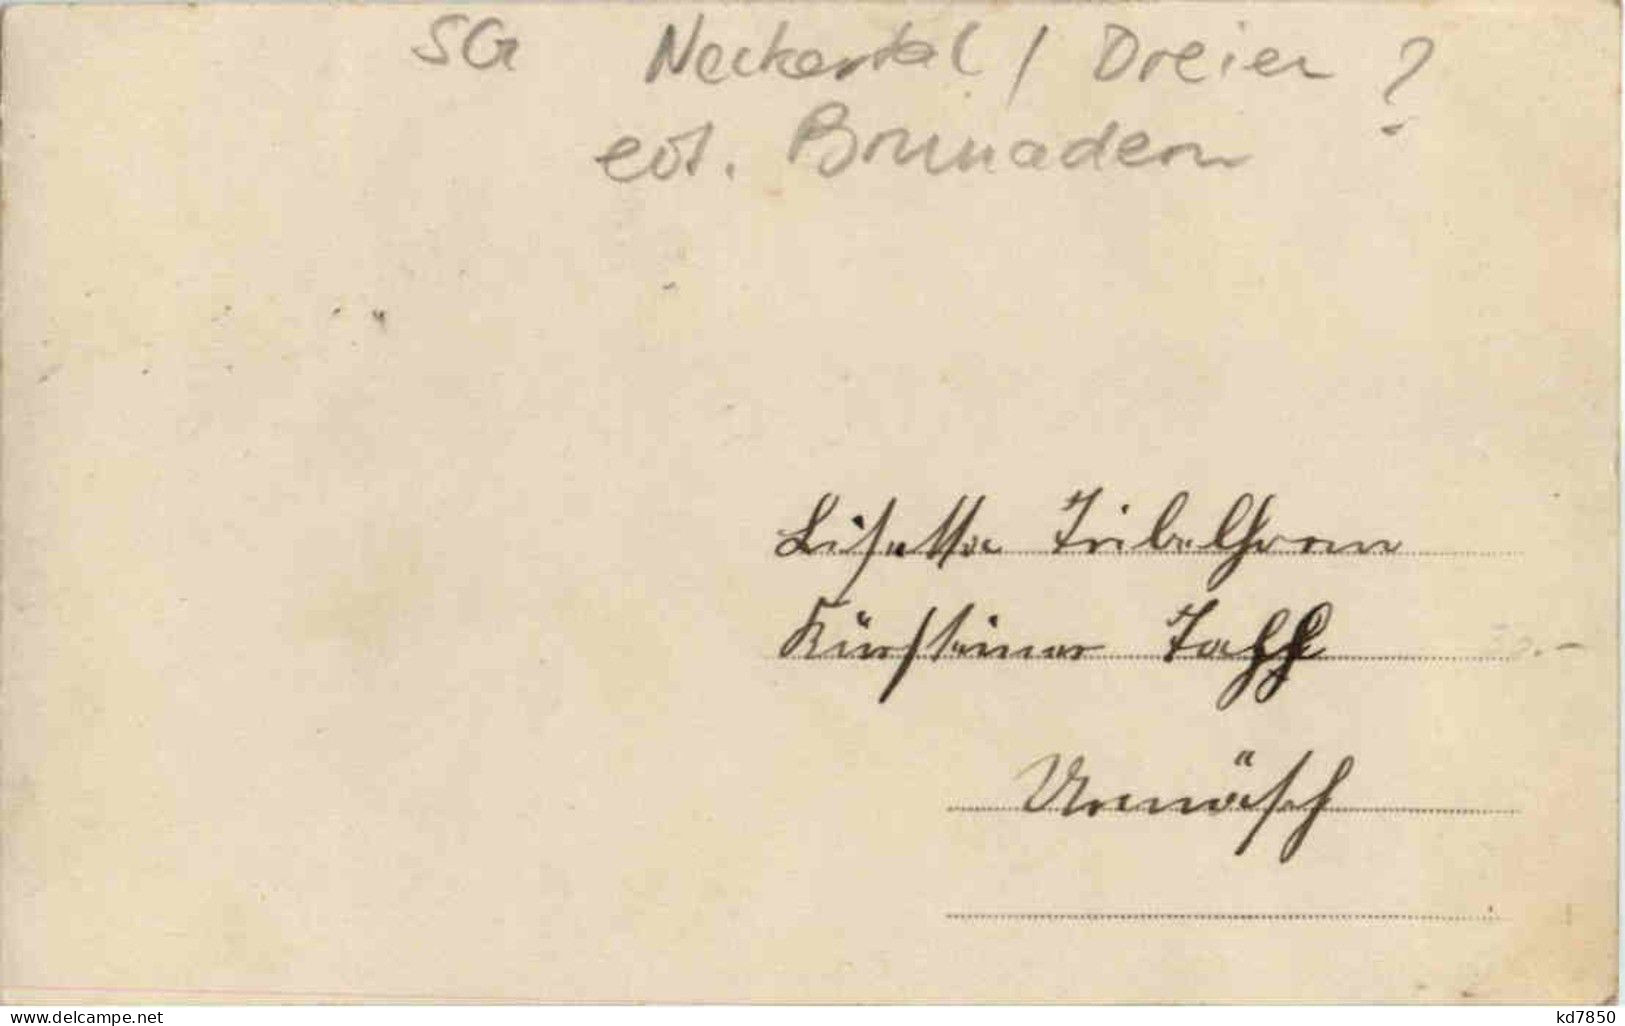 SG Neckertal / Dreier ?
evt. Brunnadern
Lisette Tribelhorn
Kürsteiner
Urnäsch
50.-
www.delcampe.net
kd7850